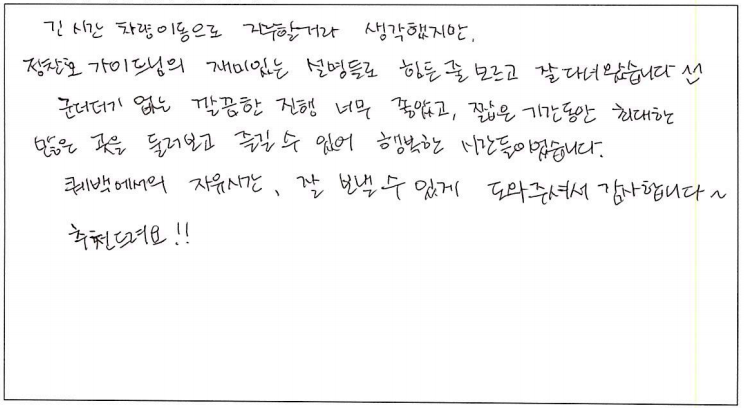 긴 시간 차량이동으로 지루할거라 생각했지만,
정찬호 가이드님의 재미있는 설명들로 힘든 줄 모르고 잘 다녀왔습니다
군더더기 없는 깔끔한 진행 너무 좋았고, 짧은 기간동안 최대한
많은 곳을 둘러보고 즐길 수 있어 행복한 시간들이었습니다.
퀘백에서의 자유시간, 잘 보낼 수 있게 도와주셔서 감사합니다~
추천드려요!!